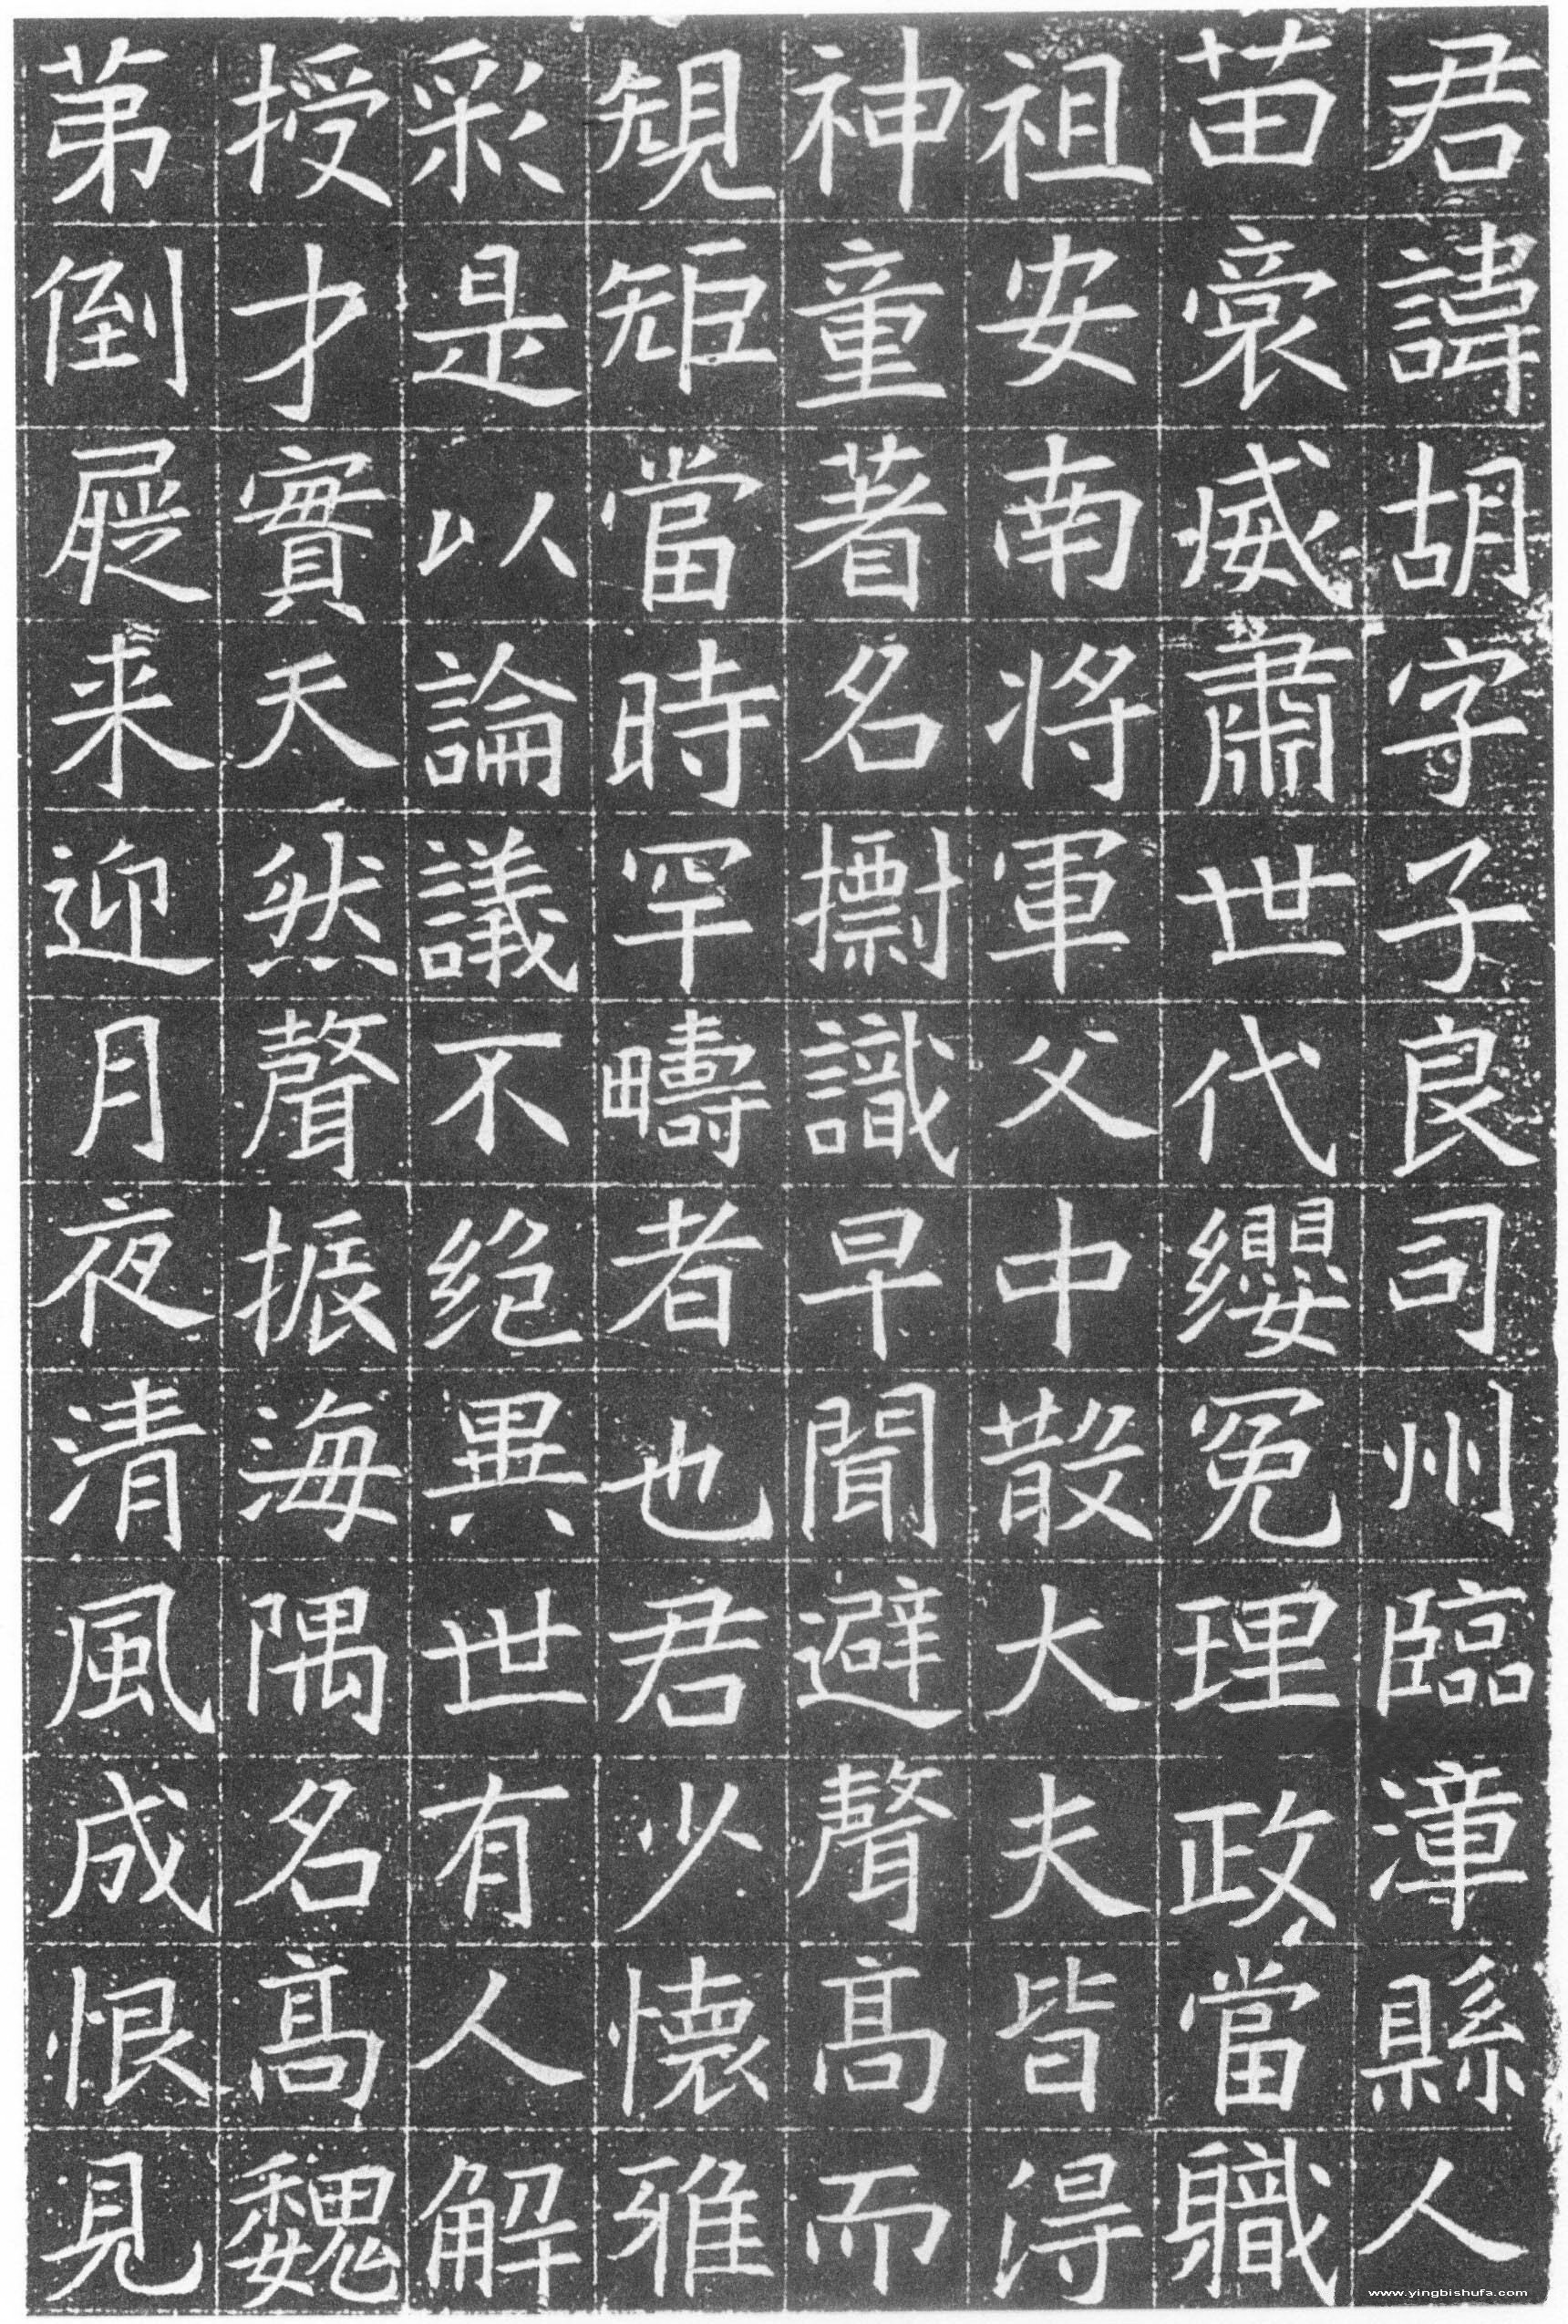 君諱胡字子良司州臨漳縣人
苗裔威肅世代纓冕理政當職
祖安南将軍父中散大夫皆得
神童著名識早聞避聲高而
䂓矩當時罕疇者也君少懷雅
彩是以論議不絕異世有人解
授才實天然聲振海隅名高魏
苐倒屣来迎月夜清風成恨見
www.yingbishufa.com